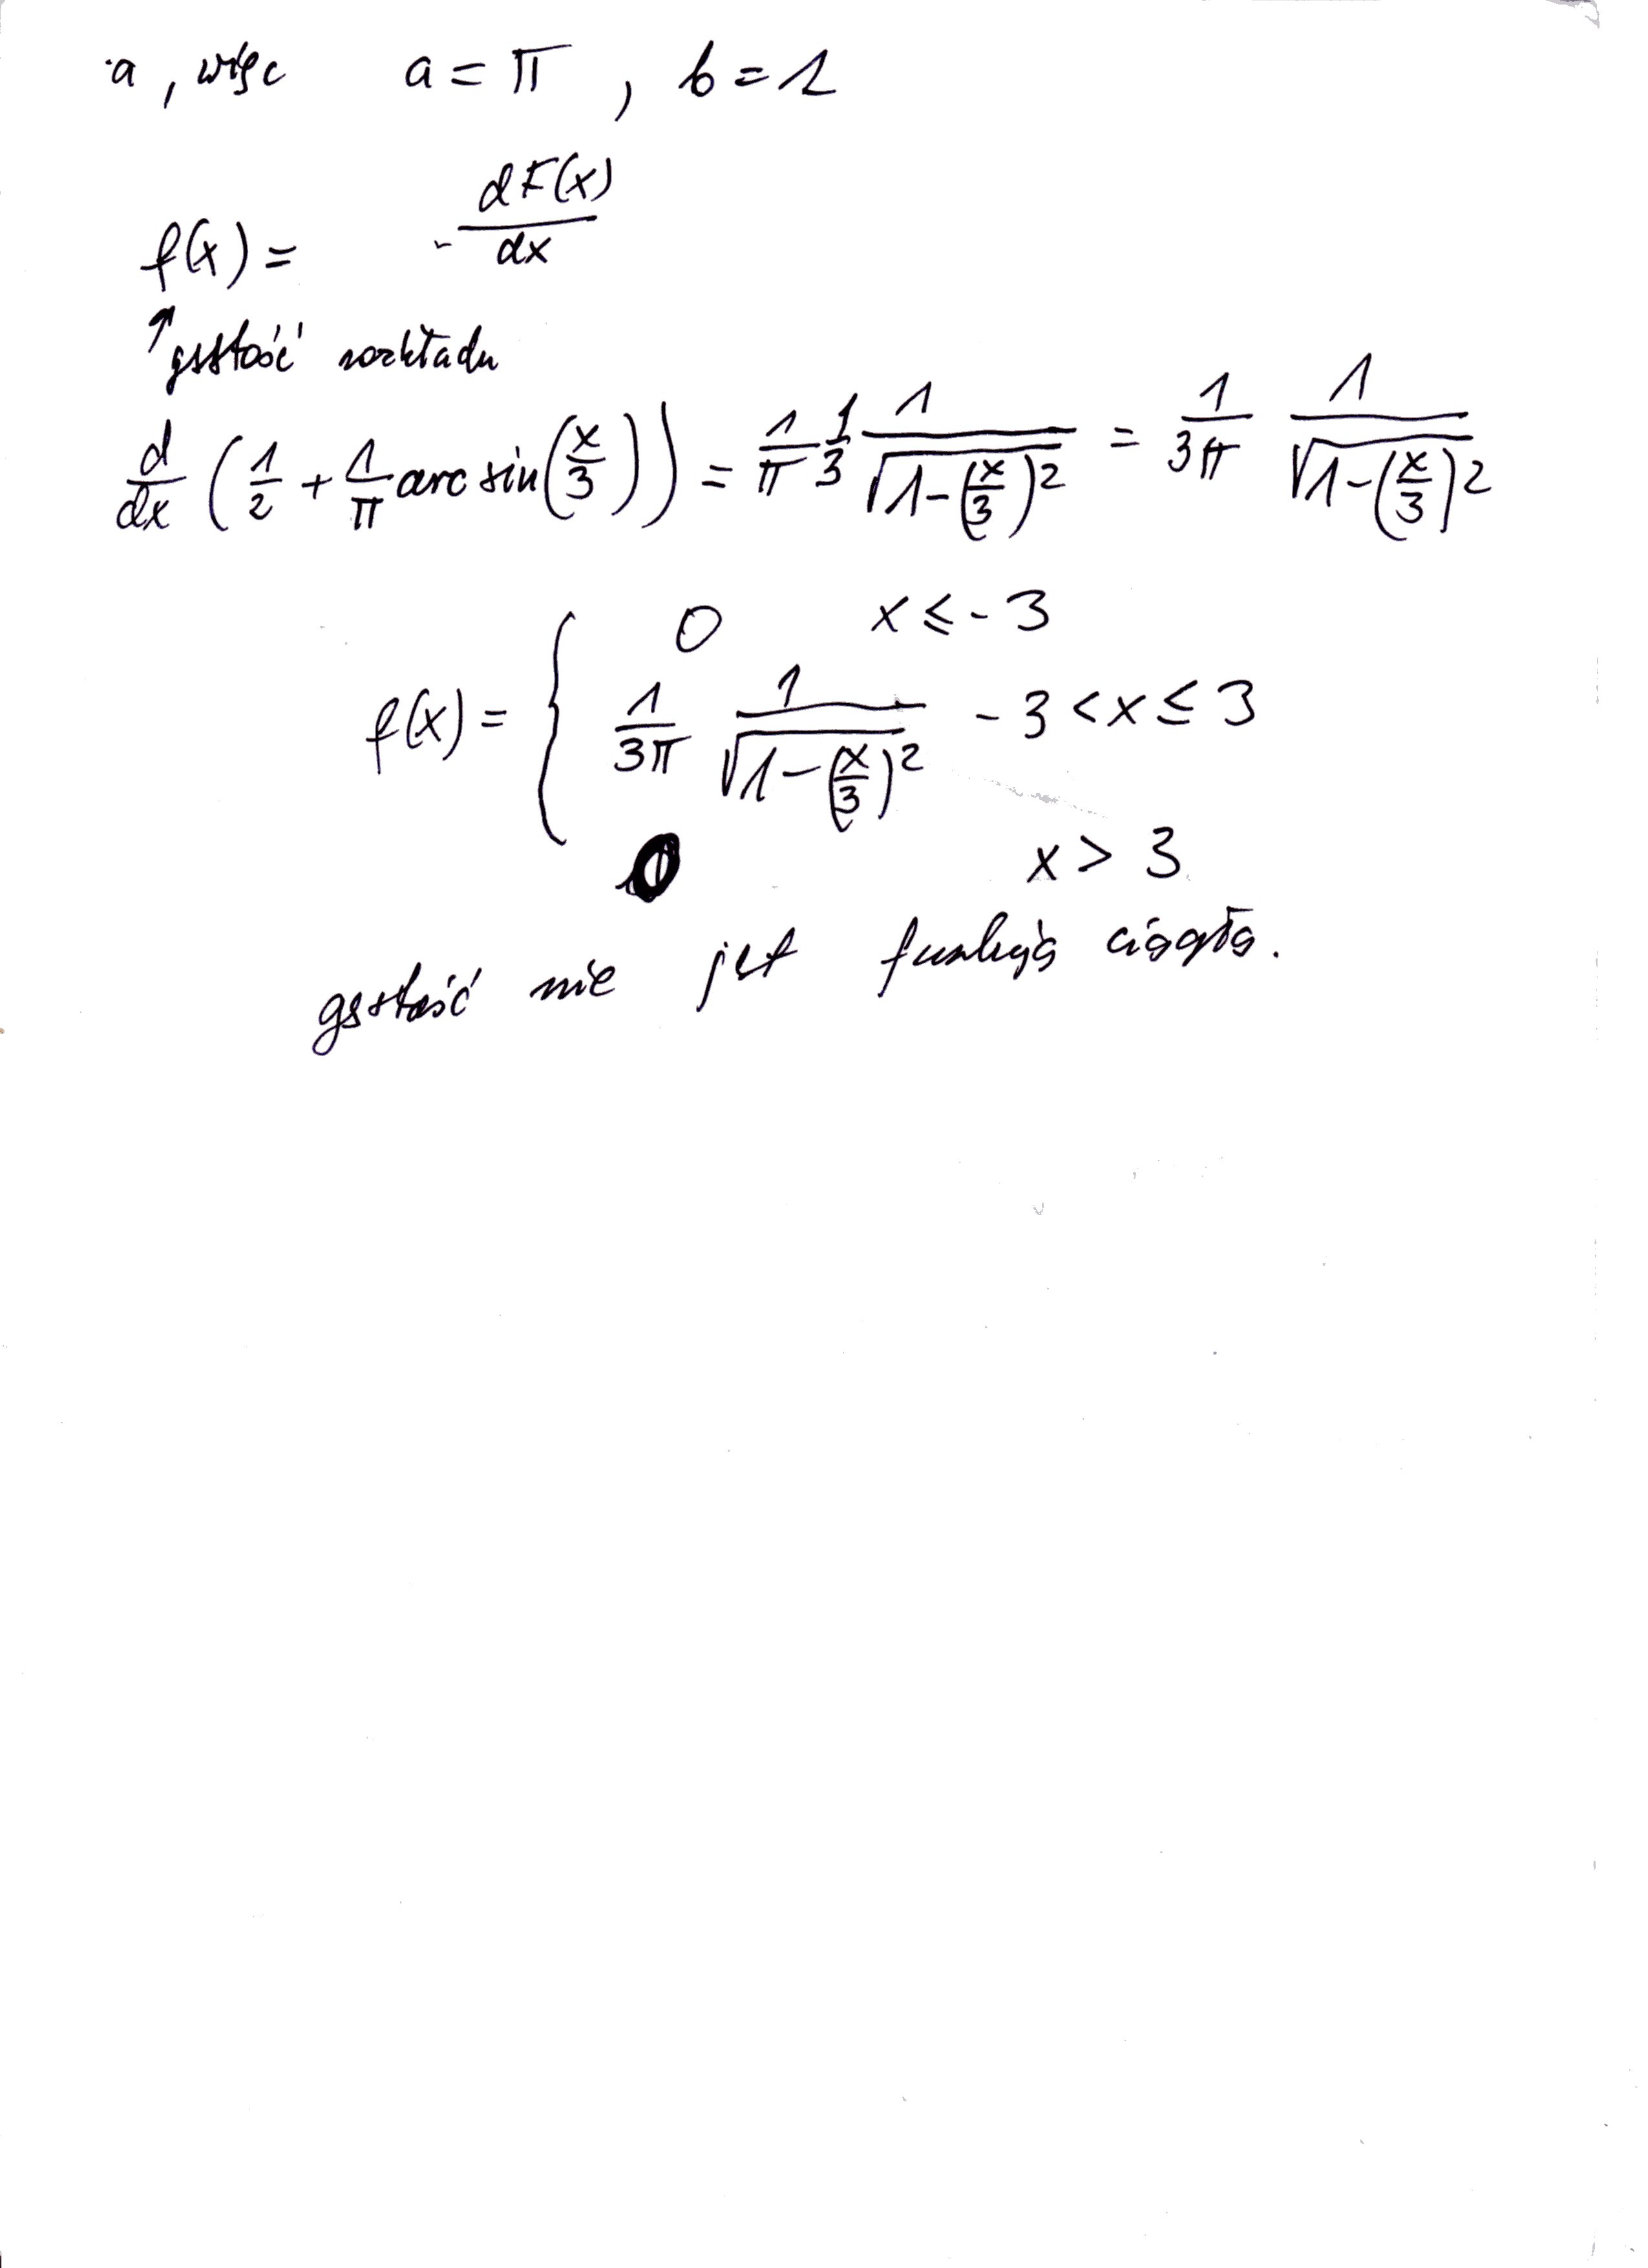 a, więc a = π , b = 1
f(x) = dF(x)/dx
↑ gęstość rozkładu
d/dx (1/2 + 1/π arc sin(x/3)) = 1/π 1/3 1/√(1-(x/3)²) = 1/(3π) 1/√(1-(x/3)²)
f(x) = { 0 x ≤ -3
1/(3π) 1/√(1-(x/3)²) -3 < x ≤ 3
0 x > 3
gęstość nie jest funkcją ciągłą.